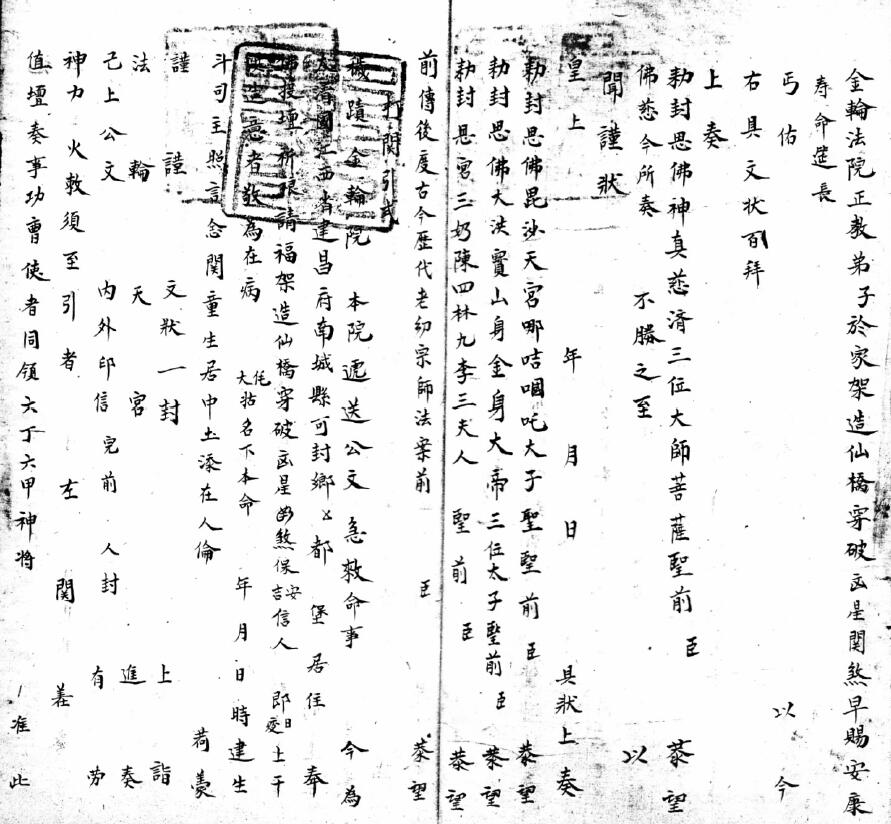 金輪法院正教弟子於家架造仙橋穿破凶星関煞早賜安康
寿命延長 以今
丐佑
右具文状百拜
上奏
勑封恩佛神真慈濟三位大師菩薩聖前 臣 恭望
佛慈今所奏 不勝之至 以
聞謹狀
皇上 年 月 日 具狀上奏
勑封恩佛毘沙天宮哪咭啯吒大子聖聖前 臣 恭望
勑封恩佛大洪寳山身金身大帝三位太子聖前 臣 恭望
勑封恩宮三奶陳四林九李三夫人 聖前 臣 恭望
前傳後度古今歷代老幼宗師法案前 臣 恭望
打関引式
穢蹟金輪院 本院遞送公文急救命事 今為
大清國江西省建昌府南城縣可封鄉 都 堡居住 奉
佛提壇祈禄請福架造仙橋穿破凶星凶煞保安吉信人 即日上干
生意者敬為在病 大拈名下本命 年月日時建生
斗司主照言念関童生居中土添在人倫 荷羙
謹謹 文狀一封 上詣
法輪 天宮 進奏
己上公文 內外印信完前人封 有勞
神力火敕須至引者 左関
值壇奏事功曹使者同領六丁六甲神將 准此